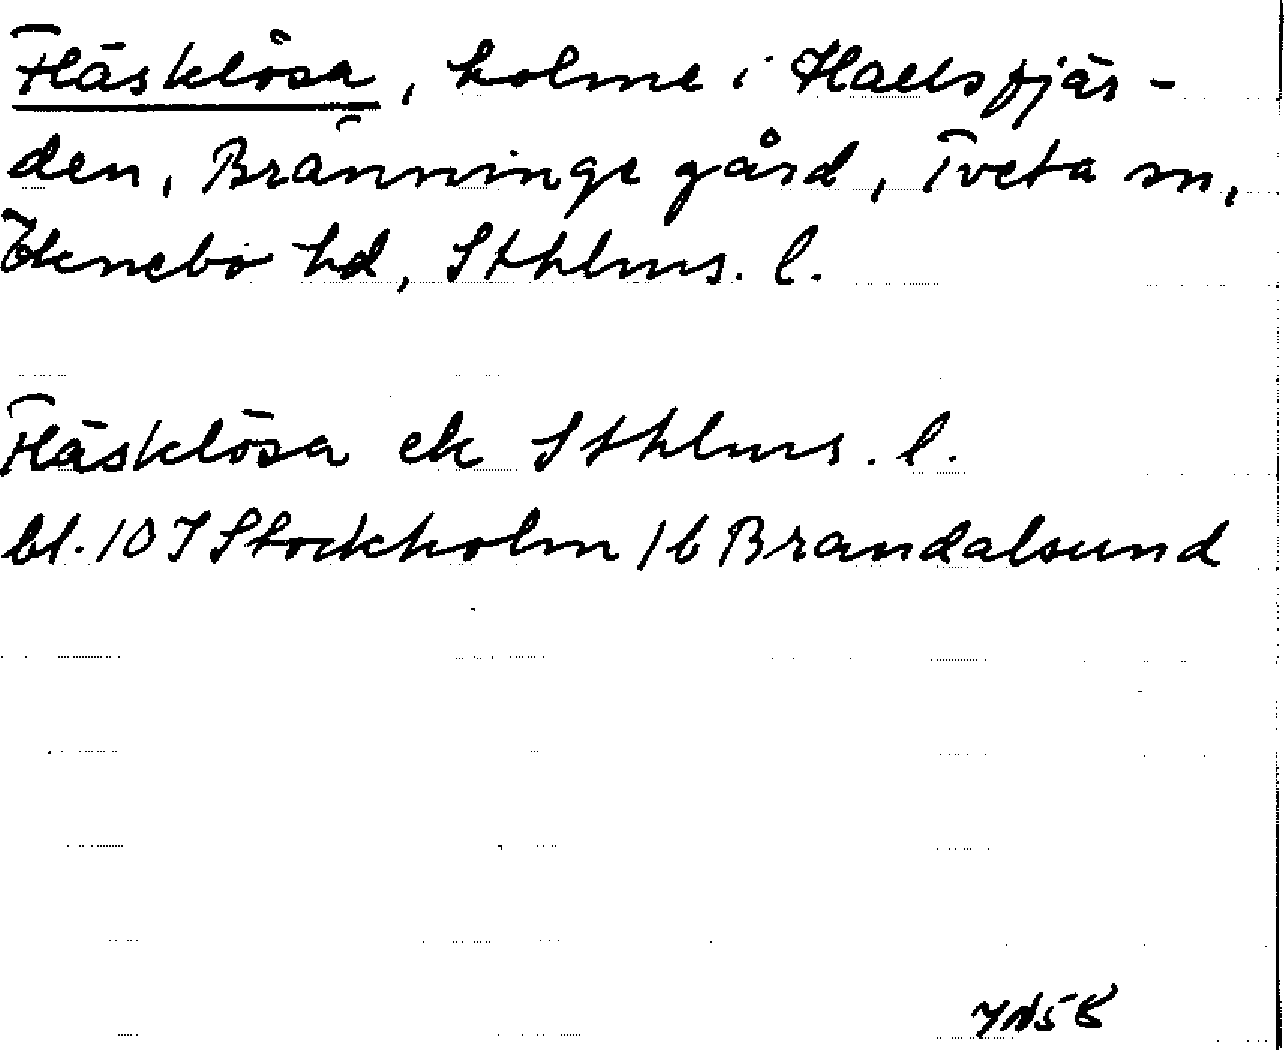 Fläsklösa, holme i Hallsfjär-
den, Bränninge gård, Tveta sn,
Öknebo hd, Sthlms. l.
Fläsklösa ek Sthlms. l.
bl. 10 I Stockholm 1b Brandalsund